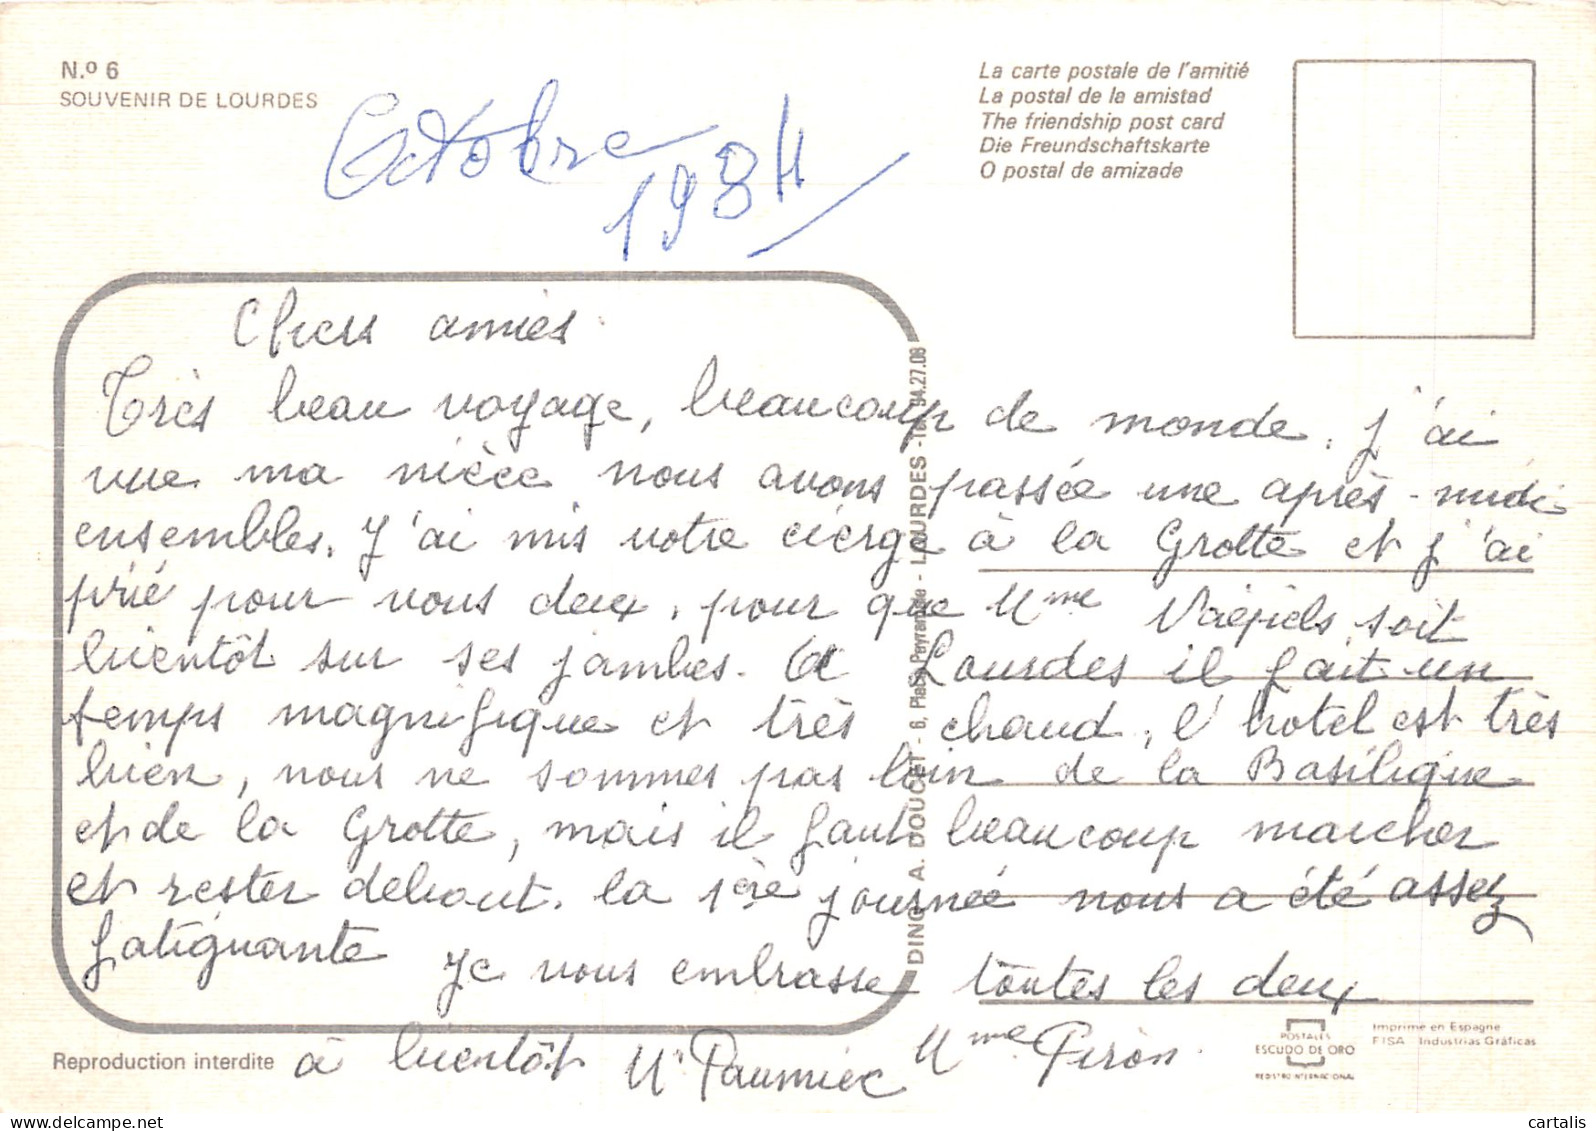 N.º 6
SOUVENIR DE LOURDES
La carte postale de l'amitié
La postal de la amistad
The friendship post card
Die Freundschaftskarte
O postal de amizade
Octobre
1984
Chers amies
Très beau voyage, beaucoup de monde, j'ai
vue ma nièce nous avons passée une après-midi
ensembles. J'ai mis votre cierge à la Grotte et j'ai
prié pour vous deux, pour que Mme soit
bientôt sur ses jambes. A Lourdes il fait un
temps magnifique et très chaud, l'hotel est très
bien, nous ne sommes pas loin de la Basilique
et de la Grotte, mais il faut beaucoup marcher
et rester debout. la 1ère journée nous a été assez
fatiguante Je vous embrasse toutes les deux
à bientôt Mme Piron
DINO A. DOUCET - 6, Place Peyramale - LOURDES - Tél. 94.27.08
Reproduction interdite
POSTALES
ESCUDO DE ORO
REGISTRO INTERNACIONAL
Imprimé en Espagne
FISA Industrias Gráficas
cartalis